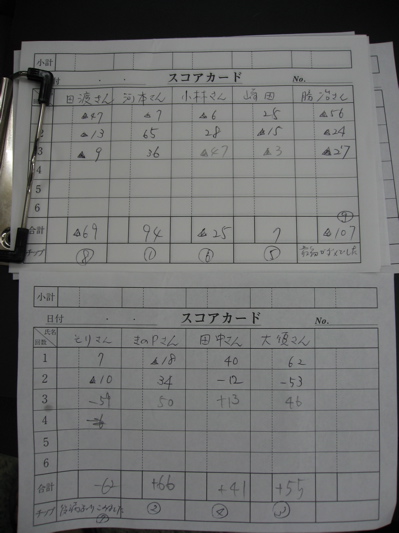 小計
付 ・ ・ スコアカード No.
田渡さん 河本さん 小林さん 嶋田 勝治さん
▲47 ▲7 ▲6 25 ▲56
2 ▲13 65 28 ▲15 ▲24
3 ▲9 36 ▲47 ▲3 ▲27
4
5
6
合計 ▲69 94 ▲25 7 ▲107
チップ ⑧ ① ⑥ ⑤ ⑨
小計
日付 ・ ・ スコアカード No.
氏名 回数 とりさん きのPさん 田中さん 大須さん
1 7 ▲18 40 62
2 ▲10 34 -12 -53
3 -59 50 +13 46
4
5
6
合計 -62 +66 +41 +55
チップ ⑦ ② ④ ③